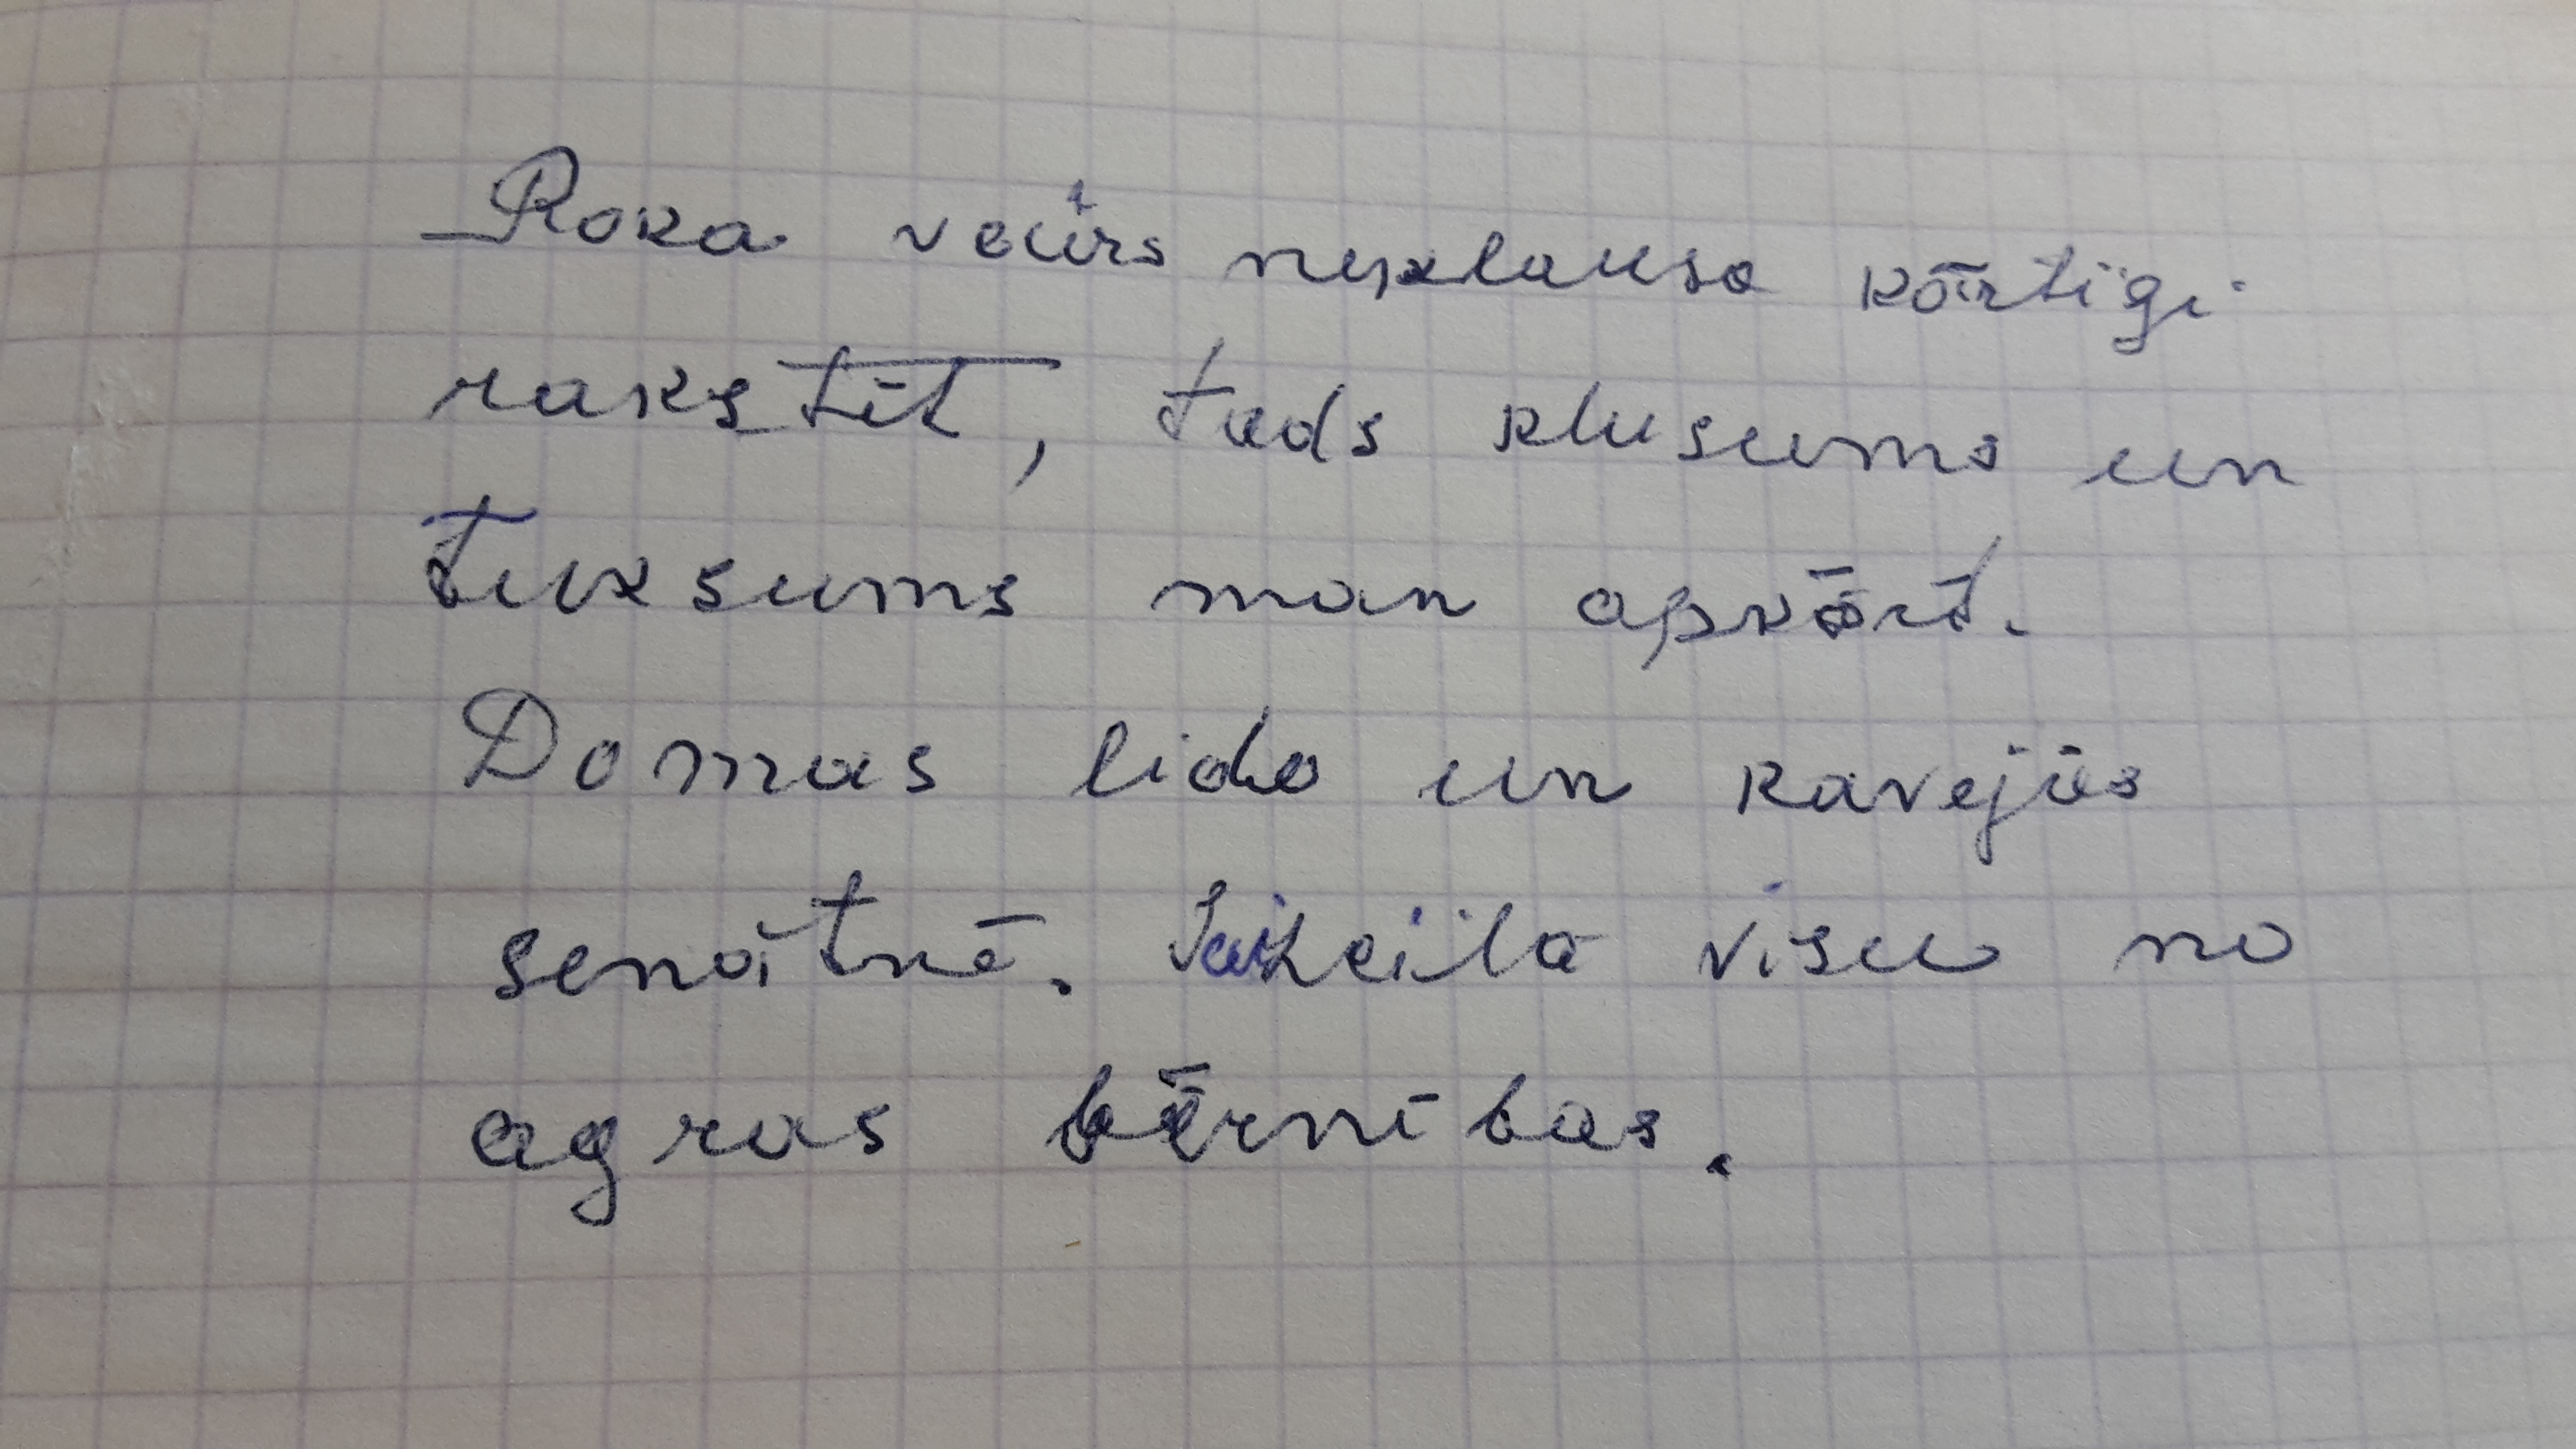 Roka vairs neklausa kārtīgi
rakstīt, tads klusums un
tuksums man apkārt.
Domas lido un kavejās
senātnē. visu no
agras bērnības.